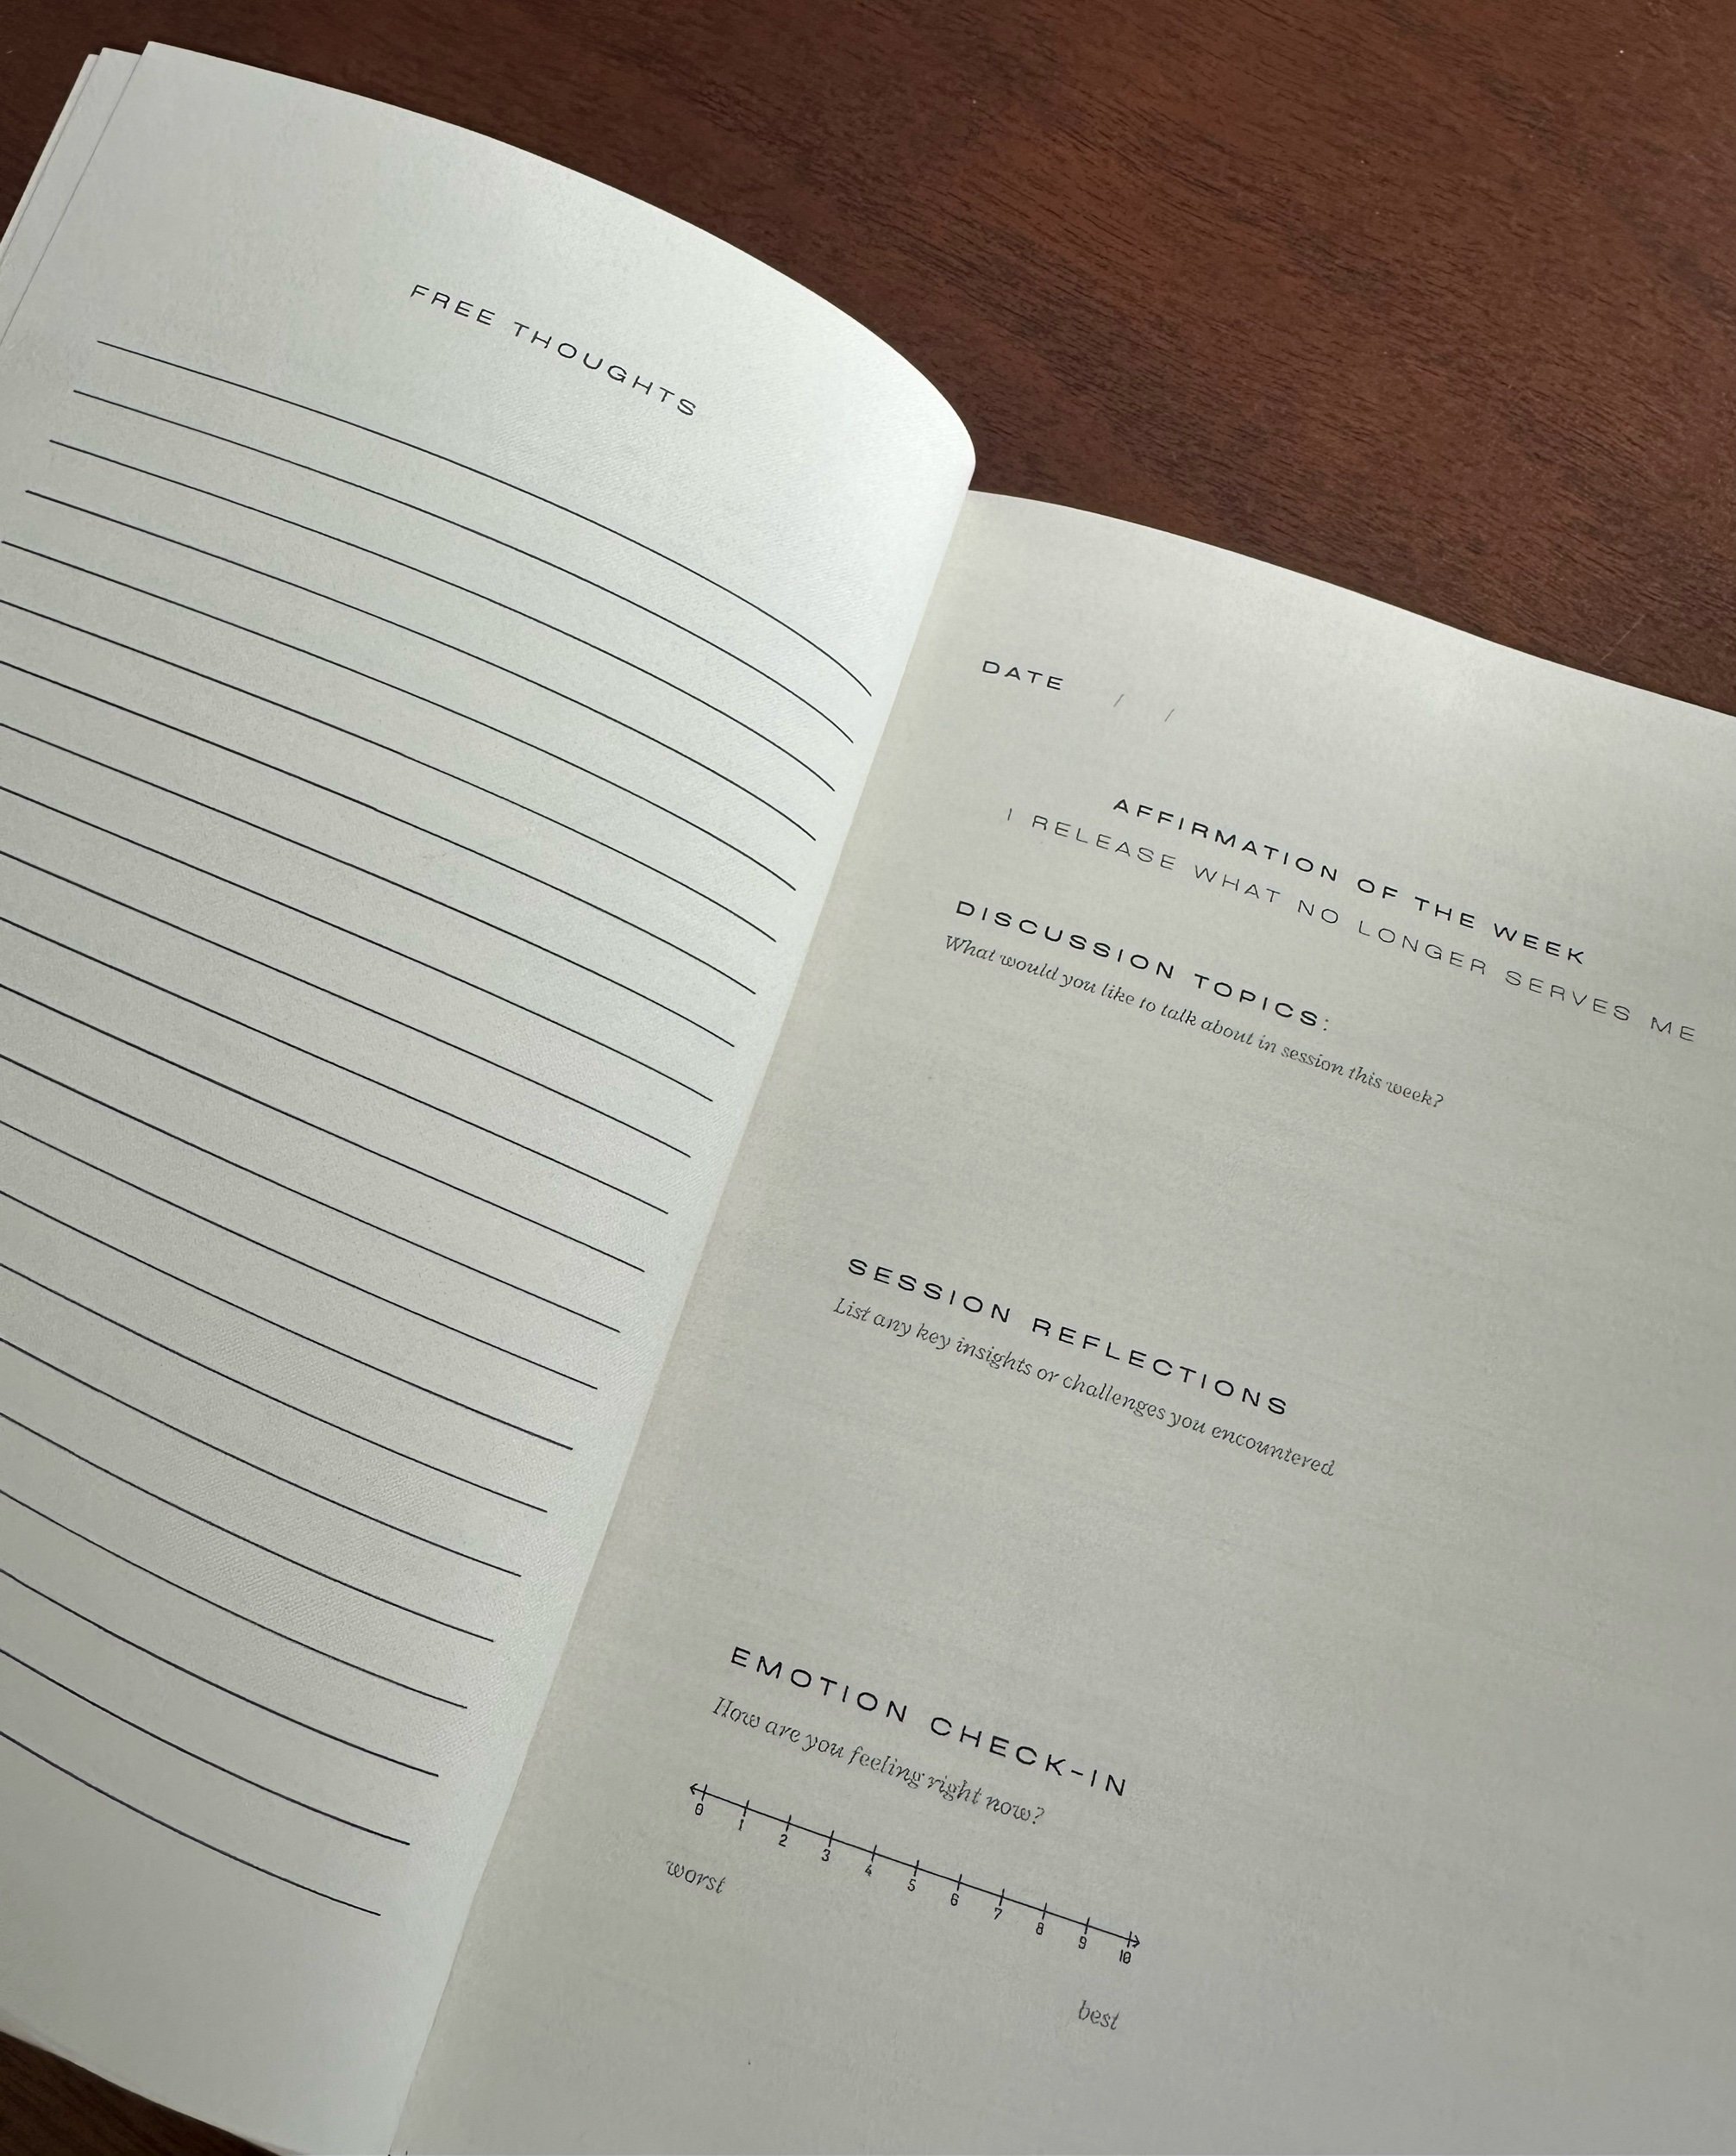 FREE THOUGHTS
DATE / /
AFFIRMATION OF THE WEEK
I RELEASE WHAT NO LONGER SERVES ME
DISCUSSION TOPICS:
What would you like to talk about in session this week?
SESSION REFLECTIONS
List any key insights or challenges you encountered
EMOTION CHECK-IN
How are you feeling right now?
0 1 2 3 4 5 6 7 8 9 10
worst best